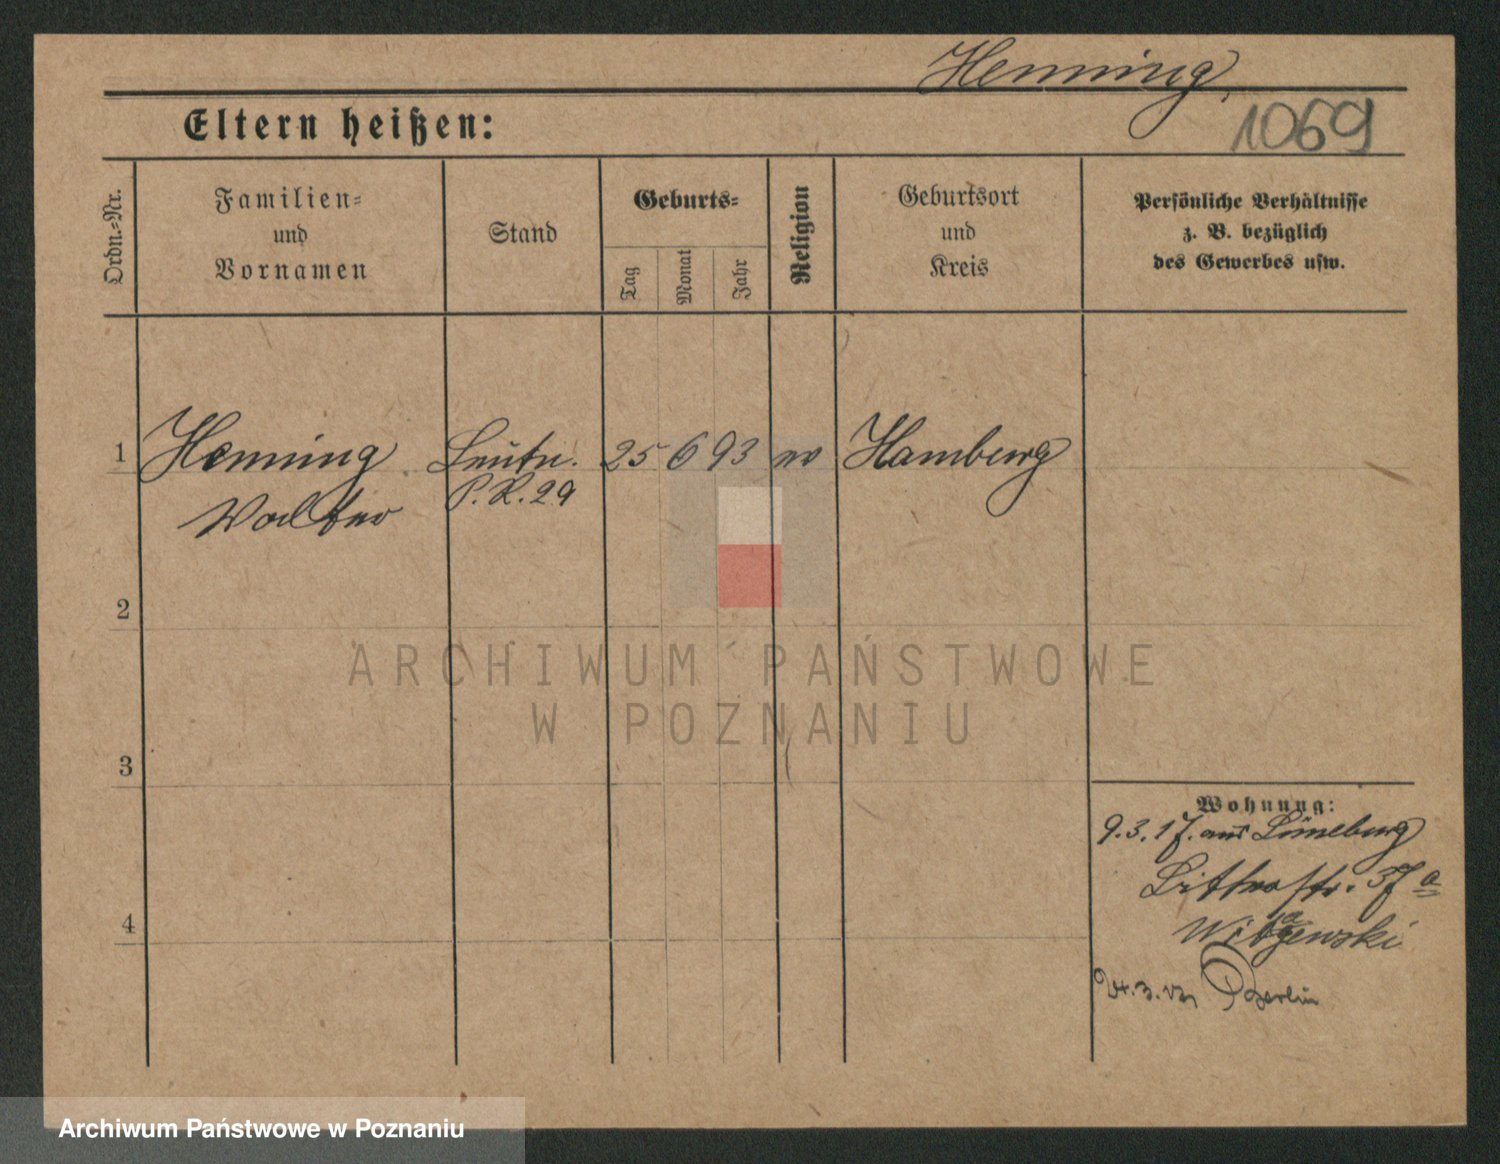 Henning
1069
Eltern heißen:
Ordn.-Nr.
Familien-
und
Vornamen
Stand
Geburts-
Tag
Monat
Jahr
Religion
Geburtsort
und
Kreis
Persönliche Verhältnisse
z. B. bezüglich
des Gewerbes usw.
1 Henning Leutn. 25 6 93 ev Hamburg
Walter P.R. 29
2
3
4
Wohnung:
9.3.17. aus Lüneburg
Ritterstr. 37 a
24.3. Berlin
ARCHIWUM PAŃSTWOWE
W POZNANIU
Archiwum Państwowe w Poznaniu